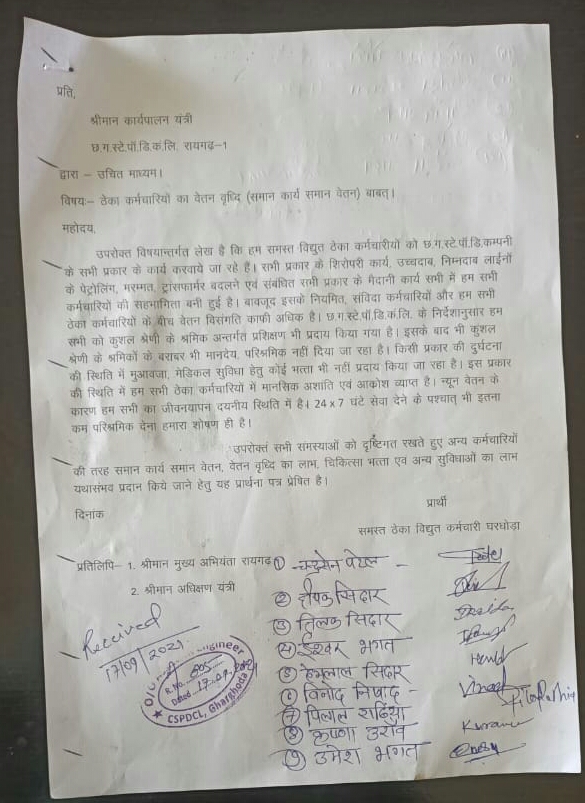 प्रति,
श्रीमान कार्यपालन यंत्री
छ.ग.स्टे.पॉ.डि.कं.लि. रायगढ़–1
द्वारा – उचित माध्यम।
विषयः– ठेका कर्मचारियों का वेतन वृध्दि (समान कार्य समान वेतन) बाबत्।
महोदय,
उपरोक्त विषयान्तर्गत लेख है कि हम समस्त विद्युत ठेका कर्मचारीयो को छ.ग.स्टे.पॉ.डि.कम्पनी
के सभी प्रकार के कार्य करवाये जा रहे हैं। सभी प्रकार के शिरोपरी कार्य, उच्चदाब, निम्नदाब लाईनों
के पेट्रोलिंग, मरम्मत, ट्रांसफार्मर बदलने एवं संबधित सभी प्रकार के मैदानी कार्य सभी में हम सभी
कर्मचारियों की सहभागिता बनी हुई है। बावजूद इसके नियमित, संविदा कर्मचारियों और हम सभी
ठेका कर्मचारियों के बीच वेतन विसंगति काफी अधिक है। छ.ग.स्टे.पॉ.डि.कं.लि. के निर्देशानुसार हम
सभी को कुशल श्रेणी के श्रमिक अन्तर्गत प्रशिक्षण भी प्रदाय किया गया है। इसके बाद भी कुंशल
श्रेणी के श्रमिकों के बराबर भी मानदेय, परिश्रमिक नहीं दिया जा रहा है। किसी प्रकार की दुर्घटना
की स्थिति में मुआवजा, मेडिकल सुविधा हेतु कोई भत्ता भी नहीं प्रदाय किया जा रहा है। इस प्रकार
की स्थिति में हम सभी ठेका कर्मचारियों में मानसिक अशांति एवं आकोश व्याप्त है। न्यून वेतन के
कारण हम सभी का जीवनयापन दयनीय स्थिति में है। 24 x 7 घंटे सेवा देने के पश्चात् भी इतना
कम परिश्रमिक देना हमारा शोषण ही है।
उपरोक्त सभी समस्याओं को दृष्टिगत रखते हुए अन्य कर्मचारियों
की तरह समान कार्य समान वेतन, वेतन वृध्दि का लाभ, चिकित्सा भत्ता एवं अन्य सुविधाओं का लाभ
यथासंभव प्रदान किये जाने हेतु यह प्रार्थना पत्र प्रेषित है।
दिनांक
प्रार्थी
समस्त ठेका विद्युत कर्मचारी घरघोड़ा
प्रतिलिपि– 1. श्रीमान मुख्य अभियंता रायगढ़
2. श्रीमान अधिक्षण यंत्री
① चन्द्रसेन पटेल –
② दीपक सिदार
③ तिलक सिदार
④ ईश्वर भगत
⑤ हेमलाल सिदार
⑥ विनोद निषाद – Vinod
⑦ पिलाल राठिया
⑧ कृष्णा उरांव
⑨ उमेश भगत
Received
17/09/2021
Engineer
R.No. 605
Dated 17.09.
CSPDCL, Gharghoda